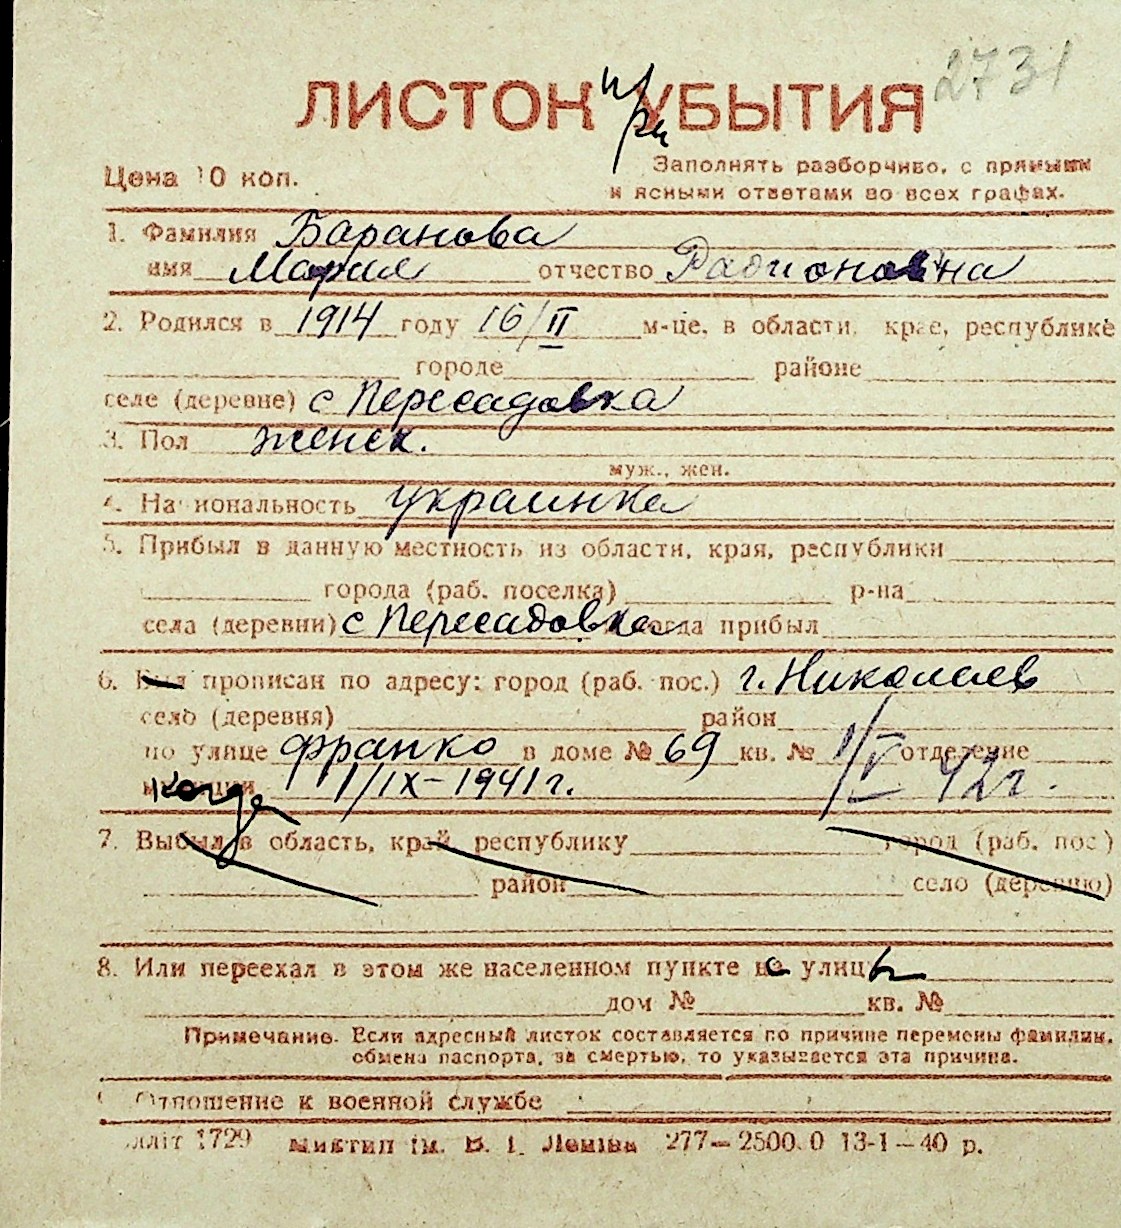 2731
ЛИСТОК при УБЫТИЯ
Цена 10 коп.
Заполнять разборчиво, с прямыми
и ясными ответами во всех графах.
1. Фамилия Баранова
имя Мария отчество Радионовна
2. Родился в 1914 году 16/II м-це, в области, крае, республике
городе районе
селе (деревне) с Пересадовка
3. Пол женск.
муж., жен.
4. Национальность украинка
5. Прибыл в данную местность из области, края, республики
города (раб. поселка) р-на
села (деревни) с Пересадовка когда прибыл
6. Был прописан по адресу: город (раб. пос.) г. Николаев
село (деревня) район
по улице Франко в доме № 69 кв. № отделение
милиции когда 1/IX-1941г. 1/V 42г.
7. Выбыл в область, край, республику город (раб. пос.)
район село (деревню)
8. Или переехал в этом же населенном пункте с улицы
дом № кв. №
Примечание. Если адресный листок составляется по причине перемены фамилии,
обмена паспорта, за смертью, то указывается эта причина.
9. Отношение к военной службе
1729 Миктип ім. В. І. Леніна 277—2500.0 13-1—40 р.